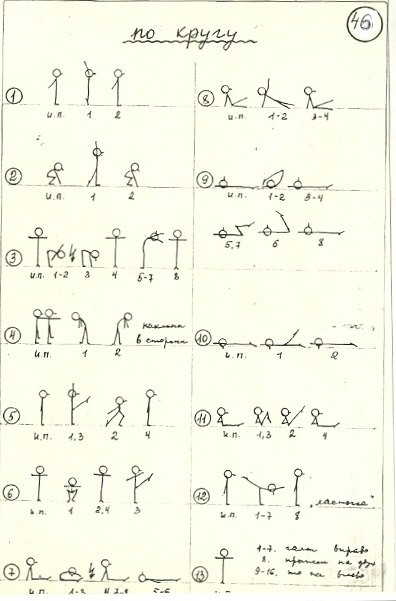 46
по кругу
1
и.п. 1 2
2
и.п. 1 2
3
и.п. 1-2 3 4 5-7 8
4
наклоны
в стороны
и.п. 1 2
5
и.п. 1,3 2 4
6
и.п. 1 2,4 3
7
8
и.п. 1-2 3-4
9
и.п. 1-2 3-4
5,7 6 8
10
и.п. 1 2
11
и.п. 1,3 2 4
12
и.п. 1-7 8 "ласточка"
13
1-7. галоп вправо
8. прыжок на двух
9-16. то же влево